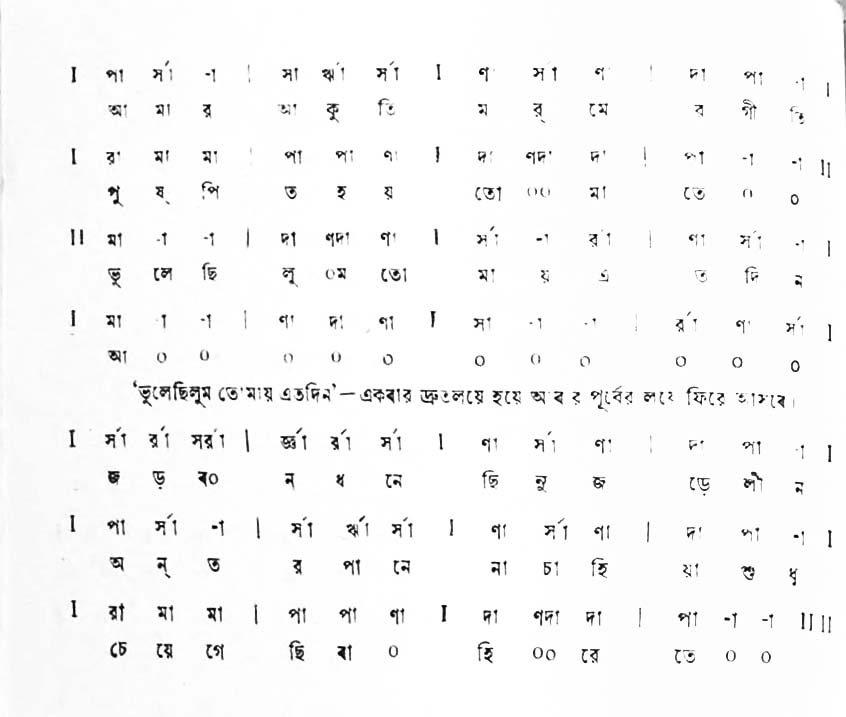 I পা র্সা -া | র্সা র্ঋা র্সা I ণা র্সা ণা | দা পা -া I
আ মা র আ কু তি ম র্ মে ব গী তি
I রা মা মা | পা পা ণা I দা ণদা দা | পা -া -া II
পু ষ্ পি ত হ য় তো ০০ মা তে ০ ০
II মা -া -া | দা ণদা ণা I র্সা -া র্রা | ণা র্সা -া I
ভু লে ছি লু ০ম তো মা য় এ ত দি ন
I মা -া -া | ণা দা ণা I র্সা -া -া | র্রা ণা র্সা I
আ ০ ০ ০ ০ ০ ০ ০ ০ ০ ০ ০
‘ভুলেছিলুম তোমায় এতদিন’—একবার দ্রুতলয়ে হয়ে আবার পূর্বের লয়ে ফিরে আসবে।
I র্সা র্রা সর্রা | র্জ্ঞা র্রা র্সা I ণা র্সা ণা | দা পা -া I
জ ড় ব০ ন ধ নে ছি নু জ ড়ে লী ন
I পা র্সা -া | র্সা র্ঋা র্সা I ণা র্সা ণা | দা পা -া I
অ ন্ ত র পা নে না চা হি য়া শু ধু
I রা মা মা | পা পা ণা I দা ণদা দা | পা -া -া II II
চে য়ে গে ছি বা ০ হি ০০ রে তে ০ ০